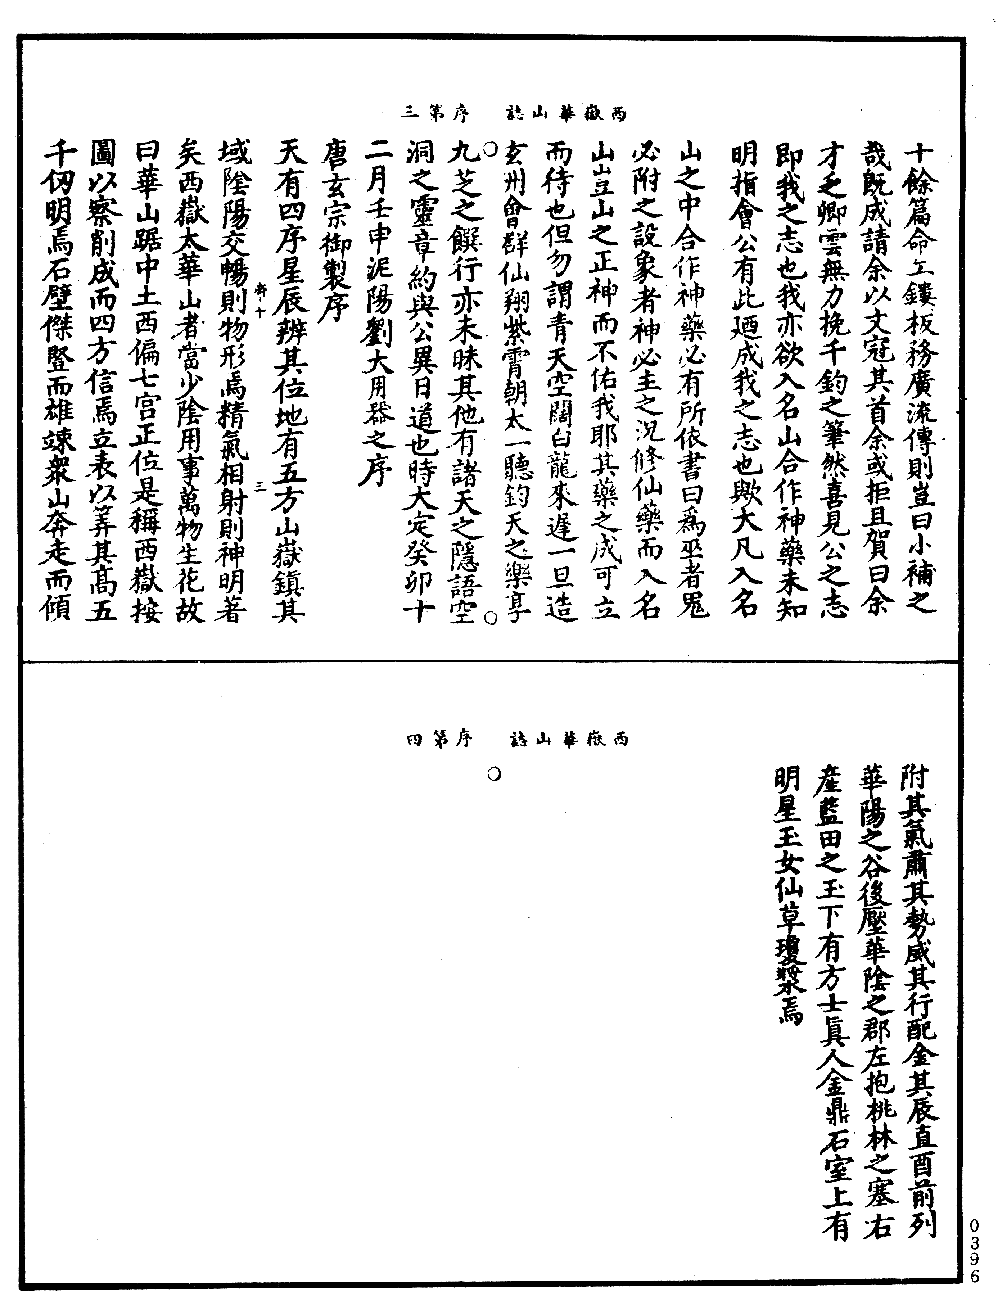 西嶽華山誌　序第三
十餘篇命工鏤板務廣流傳則豈曰小補之
哉旣成請余以文冠其首余或拒且賀曰余
才乏卿雲無力挽千鈞之筆然喜見公之志
即我之志也我亦欲入名山合作神藥未知
明指會公有此廼成我之志也歟大凡入名
山之中合作神藥必有所依書曰爲巫者鬼
必附之設象者神必主之況修仙藥而入名
山豈山之正神而不佑我耶其藥之成可立
而待也但勿謂青天空闊白龍來遲一旦造
玄州會群仙翔紫霄朝太一聽鈞天之樂享
九芝之饌行亦未昧其他有諸天之隱語空
洞之靈章約與公異日道也時大定癸卯十
二月壬申泥陽劉大用器之序
唐玄宗御製序
天有四序星辰辨其位地有五方山嶽鎮其
域陰陽交暢則物形焉精氣相射則神明著
矣西嶽太華山者當少陰用事萬物生花故
曰華山踞中土西偏七宮正位是稱西嶽按
圖以察削成而四方信焉立表以筭其高五
千仞明焉石壁傑竪而雄竦衆山奔走而傾
西嶽華山誌　序第四
附其氣肅其勢威其行配金其辰直酉前列
華陽之谷後壓華陰之郡左抱桃林之塞右
產藍田之玉下有方士眞人金鼎石室上有
明星玉女仙草瓊漿焉
0396